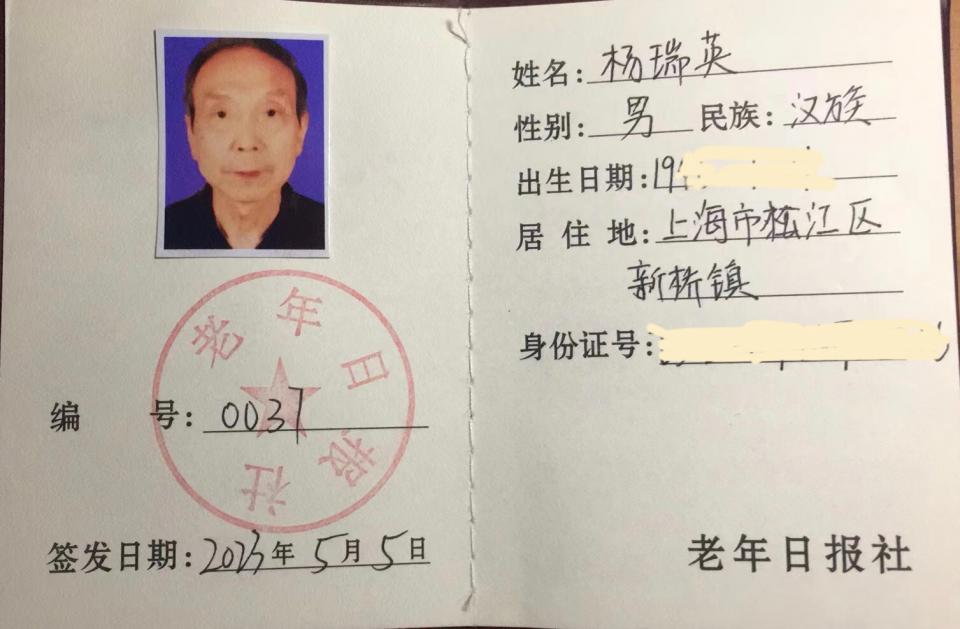 老年日报社
编号:0037
签发日期:2023年5月5日
姓名:杨瑞英
性别:男 民族:汉族
出生日期:19
居住地:上海市松江区
新桥镇
身份证号:
老年日报社